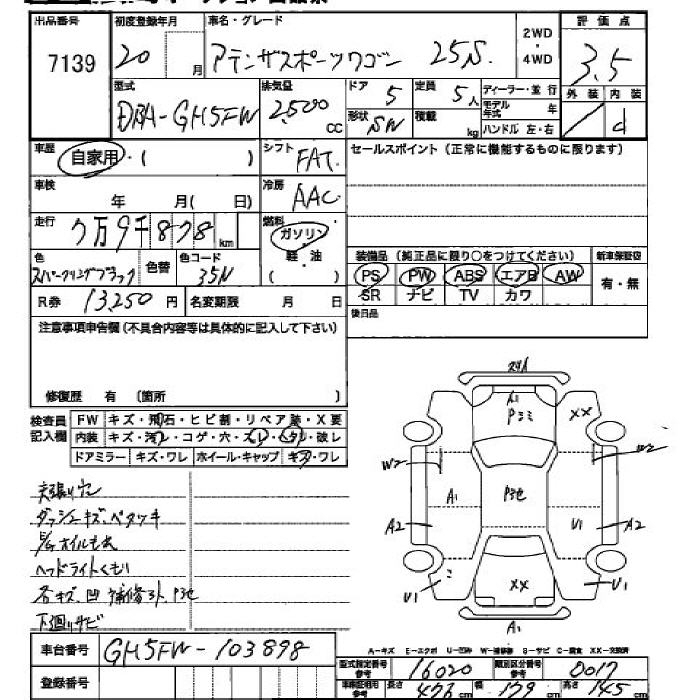 出品番号 初度登録年月 車名・グレード 2WD・4WD 評価点
7139 20 月 アテンザスポーツワゴン 25S. 3.5
型式 排気量 ドア 定員 ディーラー・並行 外装 内装
DBA-GH5FW 2,500 CC 5 5人 モデル年式 年 d
形状 SW 積載 kg ハンドル 左・右
車歴 自家用・( ) シフト FAT. セールスポイント(正常に機能するものに限ります)
車検 年 月( 日) 冷房 AAC
走行 7万9千878 km 燃料 ガソリン・軽・油
色 スパークリングブラック 色替 色コード 35N 装備品(純正品に限り○をつけてください) 新車保証書
PS PW ABS エアB AW 有・無
R券 13,250 円 名変期限 月 日 SR ナビ TV カワ
注意事項申告欄(不具合内容等は具体的に記入して下さい) 後日品
修復歴 有 〔箇所 〕
検査員記入欄 FW キズ・飛石・ヒビ割・リペア跡・X要
内装 キズ・汚レ・コゲ・穴・スレ・ヘタリ・破レ
ドアミラー キズ・ワレ ホイール・キャップ キズ・ワレ
天張りケン
ダッシュキズ、ベタツキ
E/Gオイルもれ
ヘッドライトくもり
各キズ、凹 補修跡、P色
下廻りサビ
A1 Pミミ XX
W2 W2
A1 P3色
A2 U1 A2
U1 XX U1
A1
A-キズ E-エクボ U-凹み W-補修跡 S-サビ C-腐食 XX-交換済
車台番号 GH5FW-103898
型式指定番号 参考 16020 類別区分番号 参考 0017
登録番号 車検証相用 参考 長さ 476 幅 179 高さ 145 cm